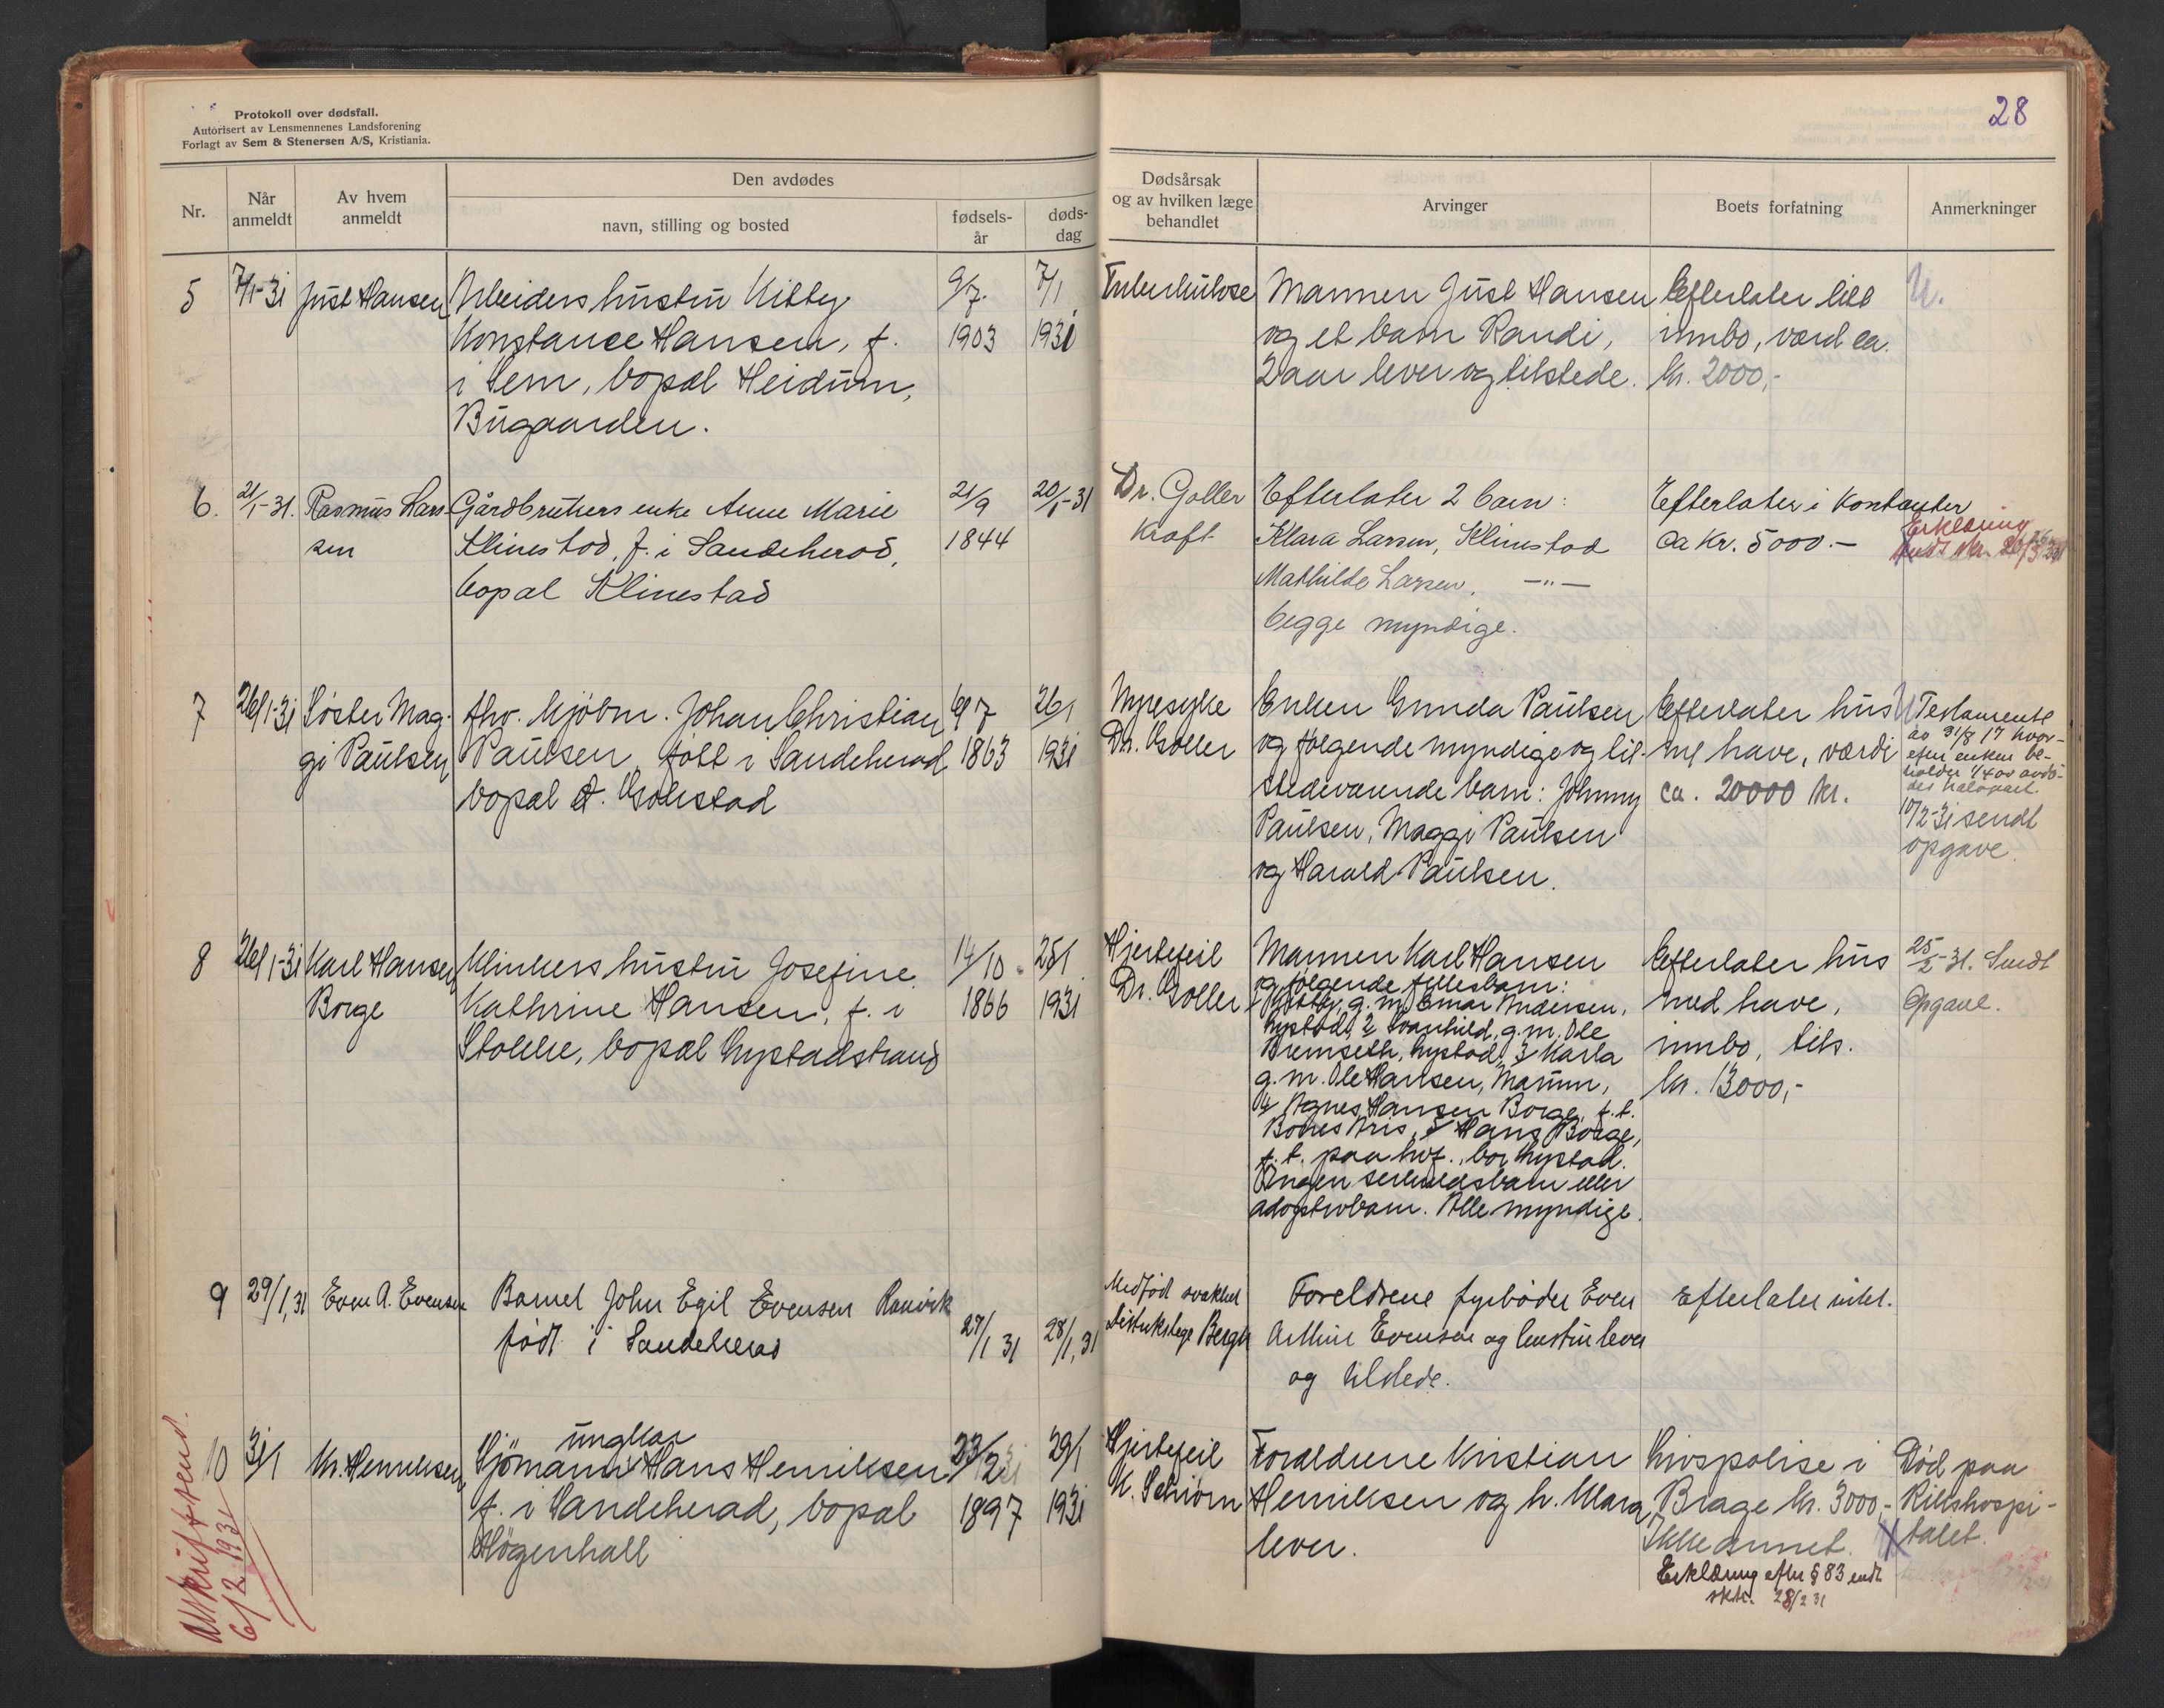 Protokoll over dødsfall.
Autorisert av Lensmennenes Landsforening
Forlagt av Sem & Stenersen A/S, Kristiania.
28
Nr.
Når anmeldt
Av hvem anmeldt
Den avdødes
navn, stilling og bosted
fødsels-år
døds-dag
Dødsårsak og av hvilken læge behandlet
Arvinger
Boets forfatning
Anmerkninger
5
7/1-31
Just Hansen
Arbeiders hustru Kitty
Konstance Hansen, f.
i Sem, bopæl Heidum,
Bugaarden.
9/7.
1903
7/1
1931
Tuberkulose
Mannen Just Hansen
og et barn Randi,
2 aar lever og tilstede.
Efterlater litt
innbo, værd ca.
kr. 2000,-
U.
6.
21/1-31.
Rasmus Lars-
sen
Gårdbrukers enke Anne Marie
Klinestad, f. i Sandeherad,
bopæl Klinestad
21/9
1844
20/1-31
Dr. Goller
Kraft
Efterlater 2 barn:
Klara Larsen, Klinestad
Mathilde Larsen, —"—
begge myndige.
Efterlater i Kontanter
ca Kr. 5000.-
Erklæring
7
26/1-31
Søster Mag-
gi Paulsen
fhv. Kjøbm. Johan Christian
Paulsen, født i Sandeherad
bopæl Gokstad
6/7
1863
26/1
1931
Nyresyke
Dr. Goller
Enken Gunda Paulsen
og følgende myndige og til-
stedeværende barn: Johnny
Paulsen, Maggi Paulsen
og Harald Paulsen.
Efterlater hus
med have, værdi
ca. 20000 kr.
U Testamente
av 31/8 17 hvor-
efter enken be-
holder 1/4 av avdø-
des halvpart.
10/2-31 sendt
opgave.
8
26/1-31
Karl Hansen
Borge
Klinkers hustru Josefine
Kathrine Hansen, f. i
Stokke, bopæl Lystadstrand
14/10
1866
25/1
1931
Hjertefeil
Dr. Goller
Mannen Karl Hansen
og følgende fellesbarn:
g. m. Einar Andersen,
Lystad, 2 Svanhild, g. m. Ole
Bremseth, Lystad, 3 Karla
g. m. Ole Hansen, Mamm,
4 Agnes Hansen Borge, f. t.
Buenos Aris, 5 Hans Borge,
f. t. paa hvf., bor Lystad.
Ingen særkuldsbarn eller
adoptivbarn. Alle myndige.
Efterlater hus
med have,
innbo, tils.
kr. 13000,-
25/2-31. Sendt
Opgave.
9
29/1,31
Even A. Evensen
Barnet John Egil Evensen Ranvik
født i Sandeherad
27/1 31
28/1,31
Medfød svakhet
Distriktslege Bergh
Foreldrene fyrbøder Even
Arthur Evensen og hustru lever
og tilstede.
Efterlater intet.
10
31/1
Kr. Henriksen
ungkar
Sjømann Hans Henriksen
f. i Sandeherad, bopæl
Høgenhall
23/2
1897
29/1
1931
Hjertefeil
K. Schiørn
Foreldrene Kristian
Henriksen og h. Klara,
lever.
Livspolise i
Brage kr. 3000,-
Ikke annet.
Erklæring efter § 83 sendt
skfr. 28/2 31
Død paa
Rikshospi-
talet.
Avskrift send.
6/2 1931